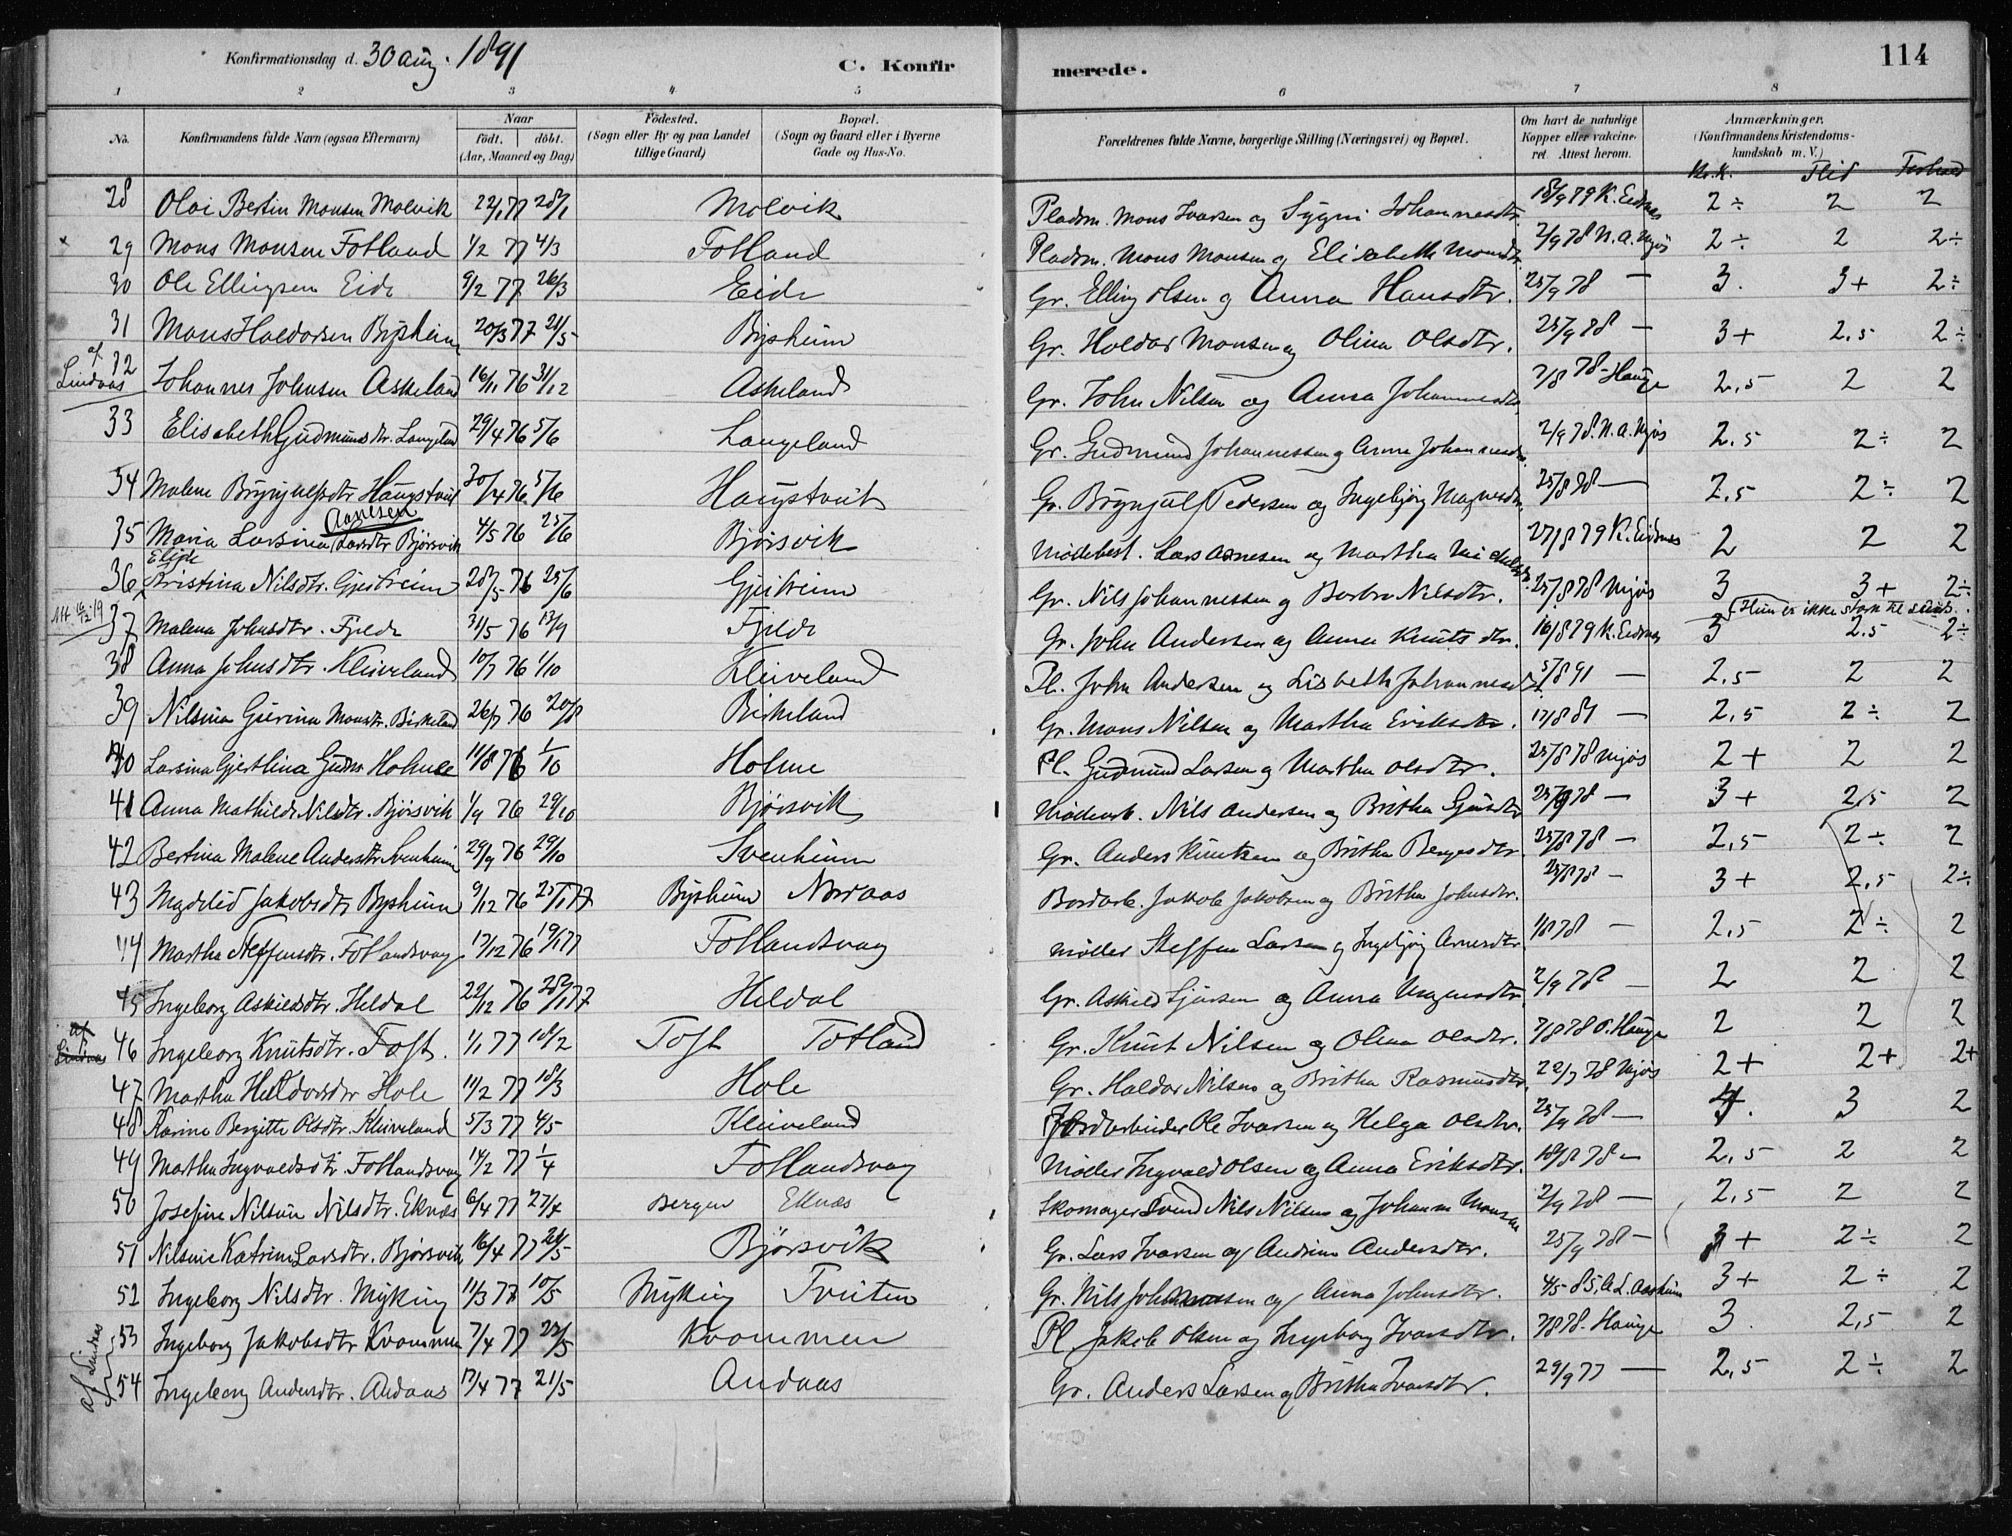 Konfirmationsdag d. 30 aug. 1891 C. Konfirmerede. 114
1 2 3 4 5 6 7 8
No. Konfirmandens fulde Navn (ogsaa Efternavn) Naar födt. döbt. (Aar, Maaned og Dag) Födested. (Sogn eller By og paa Landet tillige Gaard) Bopæl. (Sogn og Gaard eller i Byerne Gade og Hus-No. Forældrenes fulde Navne, borgerlige Stilling (Næringsvei) og Bopæl. Om havt de naturlige Kopper eller vakcineret. Attest herom. Anmærkninger. (Konfirmandens Kristendomskundskab m. V.)
Kr.k. Flid Forhold
28 Olai Bertin Monsen Molvik 22/1 77 28/1 Molvik Pladsm. Mons Ivarsen og Sygni Johannesdtr. 18/9 79 K. Eidnes 2÷ 2 2
29 Mons Monsen Fotland 1/2 77 4/3 Fotland Pladsm. Mons Monsen og Elisabeth Monsdtr. 2/9 78 N.A. Mjøs 2÷ 2 2÷
30 Ole Ellingsen Eide 9/2 77 26/3 Eide Gr. Elling Olsen og Anna Hansdtr. 25/9 78 — 3. 3+ 2÷
31 Mons Haldorsen Bysheim 20/3 77 21/5 Bysheim Gr. Haldor Monsen og Olina Olsdtr. 25/9 78 — 3+ 2,5 2÷
af Lindaas 32 Johannes Johnsen Askeland 16/11 76 31/12 Askeland Gr. John Nilsen og Anna Johannesdtr. 7/8 78 - Hauge 2,5 2 2
33 Elisabeth Gudmunsdtr. Langeland 29/4 76 5/6 Langeland Gr. Gudmund Johannessen og Anna Johannesdtr. 2/9 78. N.A. Mjøs 2,5 2÷ 2
34 Malene Brynjulfsdtr Haugstvet 30/4 76 5/6 Haugstveit Gr. Brynjulf Pedersen og Ingebjørg Magnesdtr. 25/8 78 — 2,5 2÷ 2
35 Maria Larsina Larsdtr Bjørsvik Aanesen 4/5 76 25/6 Bjørsvik Mødebest. Lars Arnesen og Martha Mickelsdtr. 27/8 79 K. Eidnes 2 2 2
36 Kristina Nilsdtr. Gjeitreim 28/5 76 25/6 Gjeitreim Gr. Nils Johannessen og Barbro Nilsdtr. 25/8 78 Mjøs 3 3+ 2÷
37 Malena Johnsdtr. Fjelde 31/5 76 13/9 Fjelde Gr. John Andersen og Anna Knuts dtr. 16/8 79 K. Eidnes 3 (Hun er ikke stærk til sinds) 2,5 2÷
38 Anna Johnsdtr. Kleiveland 10/7 76 1/10 Kleiveland Pl. John Andersen og Lisbeth Johannesdtr 5/8 91 — 2,5 2 2
39 Nilsina Gurina Monsdtr. Birkeland 26/7 76 20/8 Birkeland Gr. Mons Nilsen og Martha Eriksdtr. 17/8 81 — 2,5 2÷ 2
40 Larsina Gjertlina Gudm. Holme 11/8 76 1/10 Holme Pl. Gudmund Larsen og Martha Olsdtr. 25/8 78 Mjøs 2+ 2 2
41 Anna Mathilde Nilsdtr. Bjørsvik 1/9 76 29/10 Bjørsvik Mødearb. Nils Andersen og Britha Gjusdtr 25/9 78 — 3+ 2,5 2
42 Bertina Malene Andersdtr Svenheim 29/9 76 29/10 Svenheim Gr. Anders Knutsen og Britha Bergesdtr. 25/8 78 — 2,5 2÷ 2
43 Magdelid Jakobsdtr Bysheim 9/12 76 25/1 77 Bysheim Nordaas Bordarb. Jakob Jakobsen og Britha Johnsdtr. 25/8 78 — 3+ 2,5 2÷
44 Martha Steffensdtr. Fotlandsvaag 17/12 76 19/1 77 Fotlandsvaag Møller Steffen Larsen og Ingebjørg Arnesdtr 1/8 78 — 2,5 2÷ 2
45 Ingeborg Askildsdtr. Heldal 22/12 76 28/1 77 Heldal Gr. Askild Sjursen og Anna Magnusdtr. 2/9 78 — 2 2 2
af Lindaas 46 Ingeborg Knutsdtr. Toft. 1/1 77 18/2 Toft Totland Gr. Knut Nilsen og Olina Olsdtr. 7/8 78 O. Hauge 2 2 2
47 Martha Haldorsdtr Hole 11/2 77 18/3 Hole Gr. Haldor Nilsen og Britha Rasmusdtr. 22/7 78 Mjøs 2+ 2+ 2+
48 Karine Bergitte Olsdtr. Kleiveland 5/3 77 4/5 Kleiveland Jordarbeider Ole Ivarsen og Helga Olsdtr. 25/9 78 — 4. 3 2
49 Martha Ingvaldsdtr. Fotlandsvaag 14/2 77 1/4 Fotlandsvaag Møller Ingvald Olsen og Anna Eriksdtr. 18/8 78 — 2,5 2 2
50 Josefine Nilsine Nilsdtr. Eknæs 6/4 77 27/4 Bergen Eknæs Skomager Svend Nils Nilsen og Johanna Monsen 2/9 78 — 2,5 2 2
51 Nilsine Katrine Larsdtr. Bjørsvik 16/4 77 21/5 Bjørsvik Gr. Lars Ivarsen og Andrine Andersdtr. 25/9 78 — 3+ 2÷ 2
52 Ingeborg Nilsdtr. Myking 11/3 77 10/5 Myking Tveiten Gr. Nils Johannessen og Anna Johnsdtr. 4/5 85. A.L. Aasheim 3+ 2÷ 2
af Lindaas 53 Ingeborg Jakobsdtr Kvammen 7/4 77 22/5 Kvammen Pl. Jakob Olsen og Ingeborg Ivarsdtr. 7/8 78. Hauge 3. 2,5 2
54 Ingeborg Andersdtr. Andaas 17/4 77 21/5 Andaas Gr. Anders Larsen og Britha Ivarsdtr. 29/9 77 — 2,5 2÷ 2